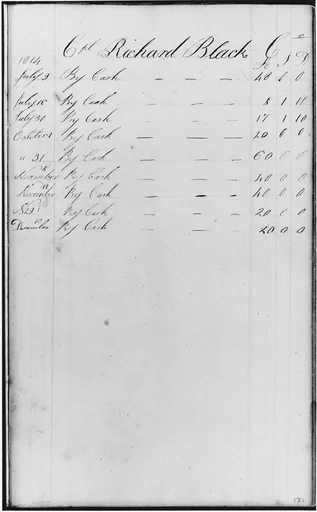 Cpt Richard Black Cr
1814 £ s D
July 2 By Cash — — — 40 0 0
July 10 By Cash — — — 8 1 10
July 30 By Cash — — — 17 1 10
October 1 By Cash — — — 20 0 0
" 31 By Cash — — — 60 0 0
November By Cash — — — 40 0 0
November By Cash — — — 40 0 0
By Cash — — — 20 0 0
December By Cash — — — 20 0 0